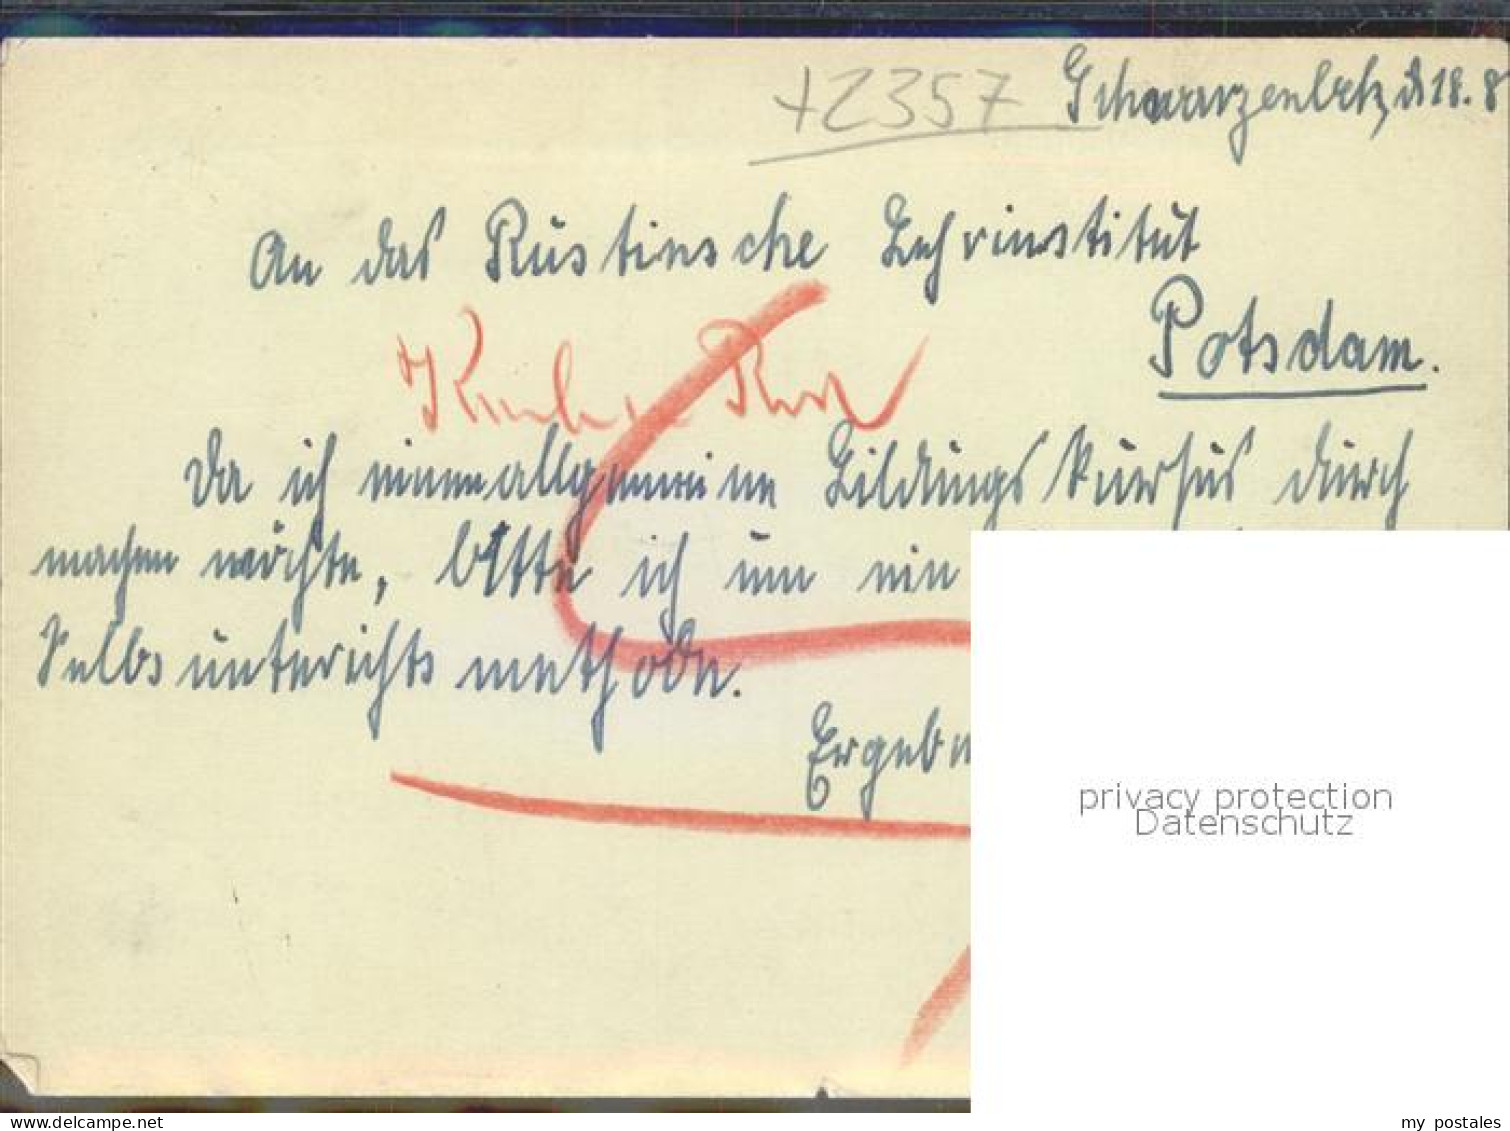 +2357
Schwarzenbek, d 18. 8
An das Rustinsche Lehrinstitut
Potsdam.
Da ich einen allgemeinen Bildungskursus durch
machen möchte, bitte ich um ein
Selbsunterichtsmethode.
Ergeb
privacy protection
Datenschutz
www.delcampe.net
my_postales